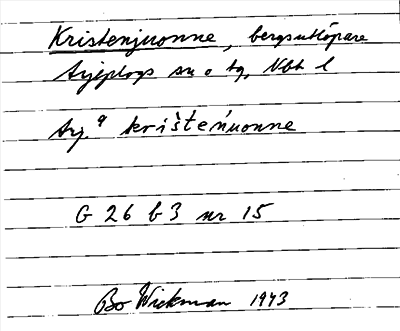 Kristenjuonne, bergsutlöpare
Arjeplogs sn o tg, Nbt l
Arj. a krišteńuonne
G 26 b 3 nr 15
Bo Wickman 1943